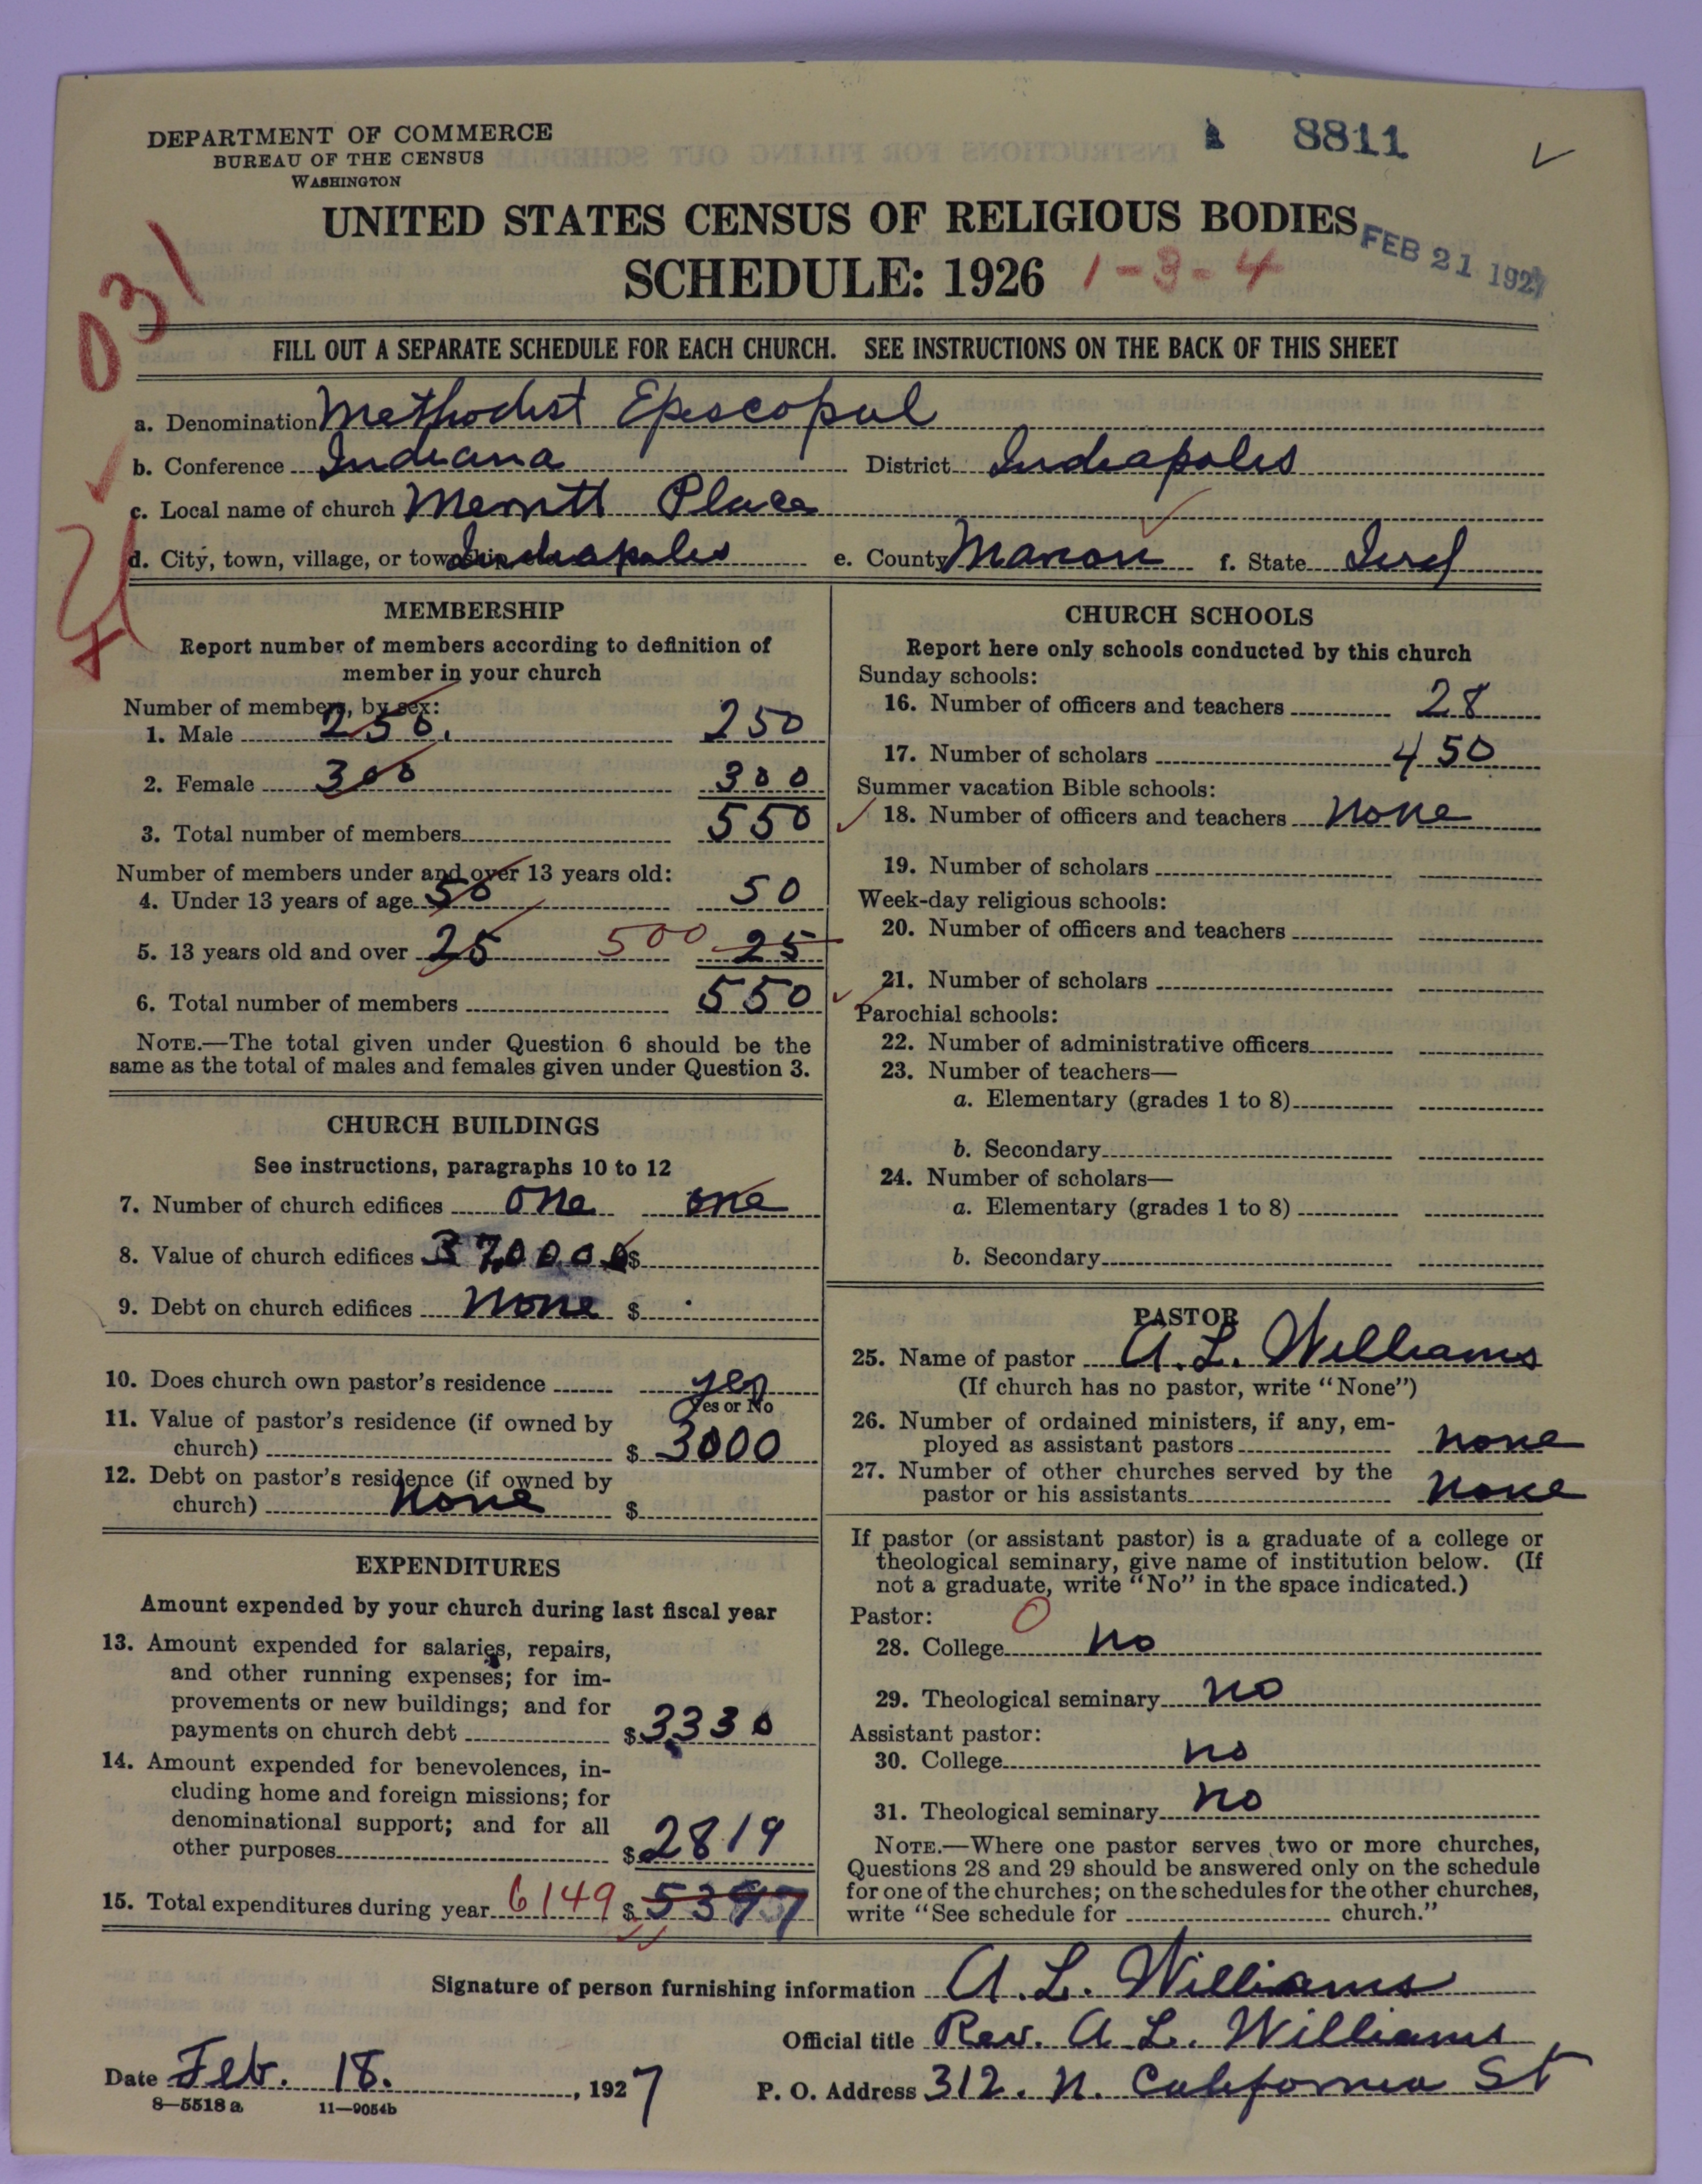 DEPARTMENT OF COMMERCE
BUREAU OF THE CENSUS
WASHINGTON
8811
UNITED STATES CENSUS OF RELIGIOUS BODIES
FEB 21 1927
SCHEDULE: 1926 1-3-4
031
FILL OUT A SEPARATE SCHEDULE FOR EACH CHURCH. SEE INSTRUCTIONS ON THE BACK OF THIS SHEET
a. Denomination Methodist Episcopal
b. Conference Indiana District Indeapoles
c. Local name of church Merritt Place
d. City, town, village, or township Indeapoles e. County Marion f. State Ind
MEMBERSHIP
Report number of members according to definition of
member in your church
Number of members, by sex:
1. Male 250. 250
2. Female 300 300
3. Total number of members 550
Number of members under and over 13 years old:
4. Under 13 years of age 50 50
5. 13 years old and over 25 500 25
6. Total number of members 550
NOTE.—The total given under Question 6 should be the
same as the total of males and females given under Question 3.
CHURCH BUILDINGS
See instructions, paragraphs 10 to 12
7. Number of church edifices one one
8. Value of church edifices 37,000 $
9. Debt on church edifices none $
10. Does church own pastor's residence yes
Yes or No
11. Value of pastor's residence (if owned by
church) $ 3000
12. Debt on pastor's residence (if owned by
church) none $
EXPENDITURES
Amount expended by your church during last fiscal year
13. Amount expended for salaries, repairs,
and other running expenses; for im-
provements or new buildings; and for
payments on church debt $ 3330
14. Amount expended for benevolences, in-
cluding home and foreign missions; for
denominational support; and for all
other purposes $ 2819
15. Total expenditures during year 6149 $ 5397
CHURCH SCHOOLS
Report here only schools conducted by this church
Sunday schools:
16. Number of officers and teachers 28
17. Number of scholars 450
Summer vacation Bible schools:
18. Number of officers and teachers none
19. Number of scholars
Week-day religious schools:
20. Number of officers and teachers
21. Number of scholars
Parochial schools:
22. Number of administrative officers
23. Number of teachers—
a. Elementary (grades 1 to 8)
b. Secondary
24. Number of scholars—
a. Elementary (grades 1 to 8)
b. Secondary
PASTOR
25. Name of pastor A. L. Williams
(If church has no pastor, write "None")
26. Number of ordained ministers, if any, em-
ployed as assistant pastors none
27. Number of other churches served by the
pastor or his assistants none
If pastor (or assistant pastor) is a graduate of a college or
theological seminary, give name of institution below. (If
not a graduate, write "No" in the space indicated.)
Pastor: 0
28. College no
29. Theological seminary no
Assistant pastor:
30. College no
31. Theological seminary no
NOTE.—Where one pastor serves two or more churches,
Questions 28 and 29 should be answered only on the schedule
for one of the churches; on the schedules for the other churches,
write "See schedule for church."
Signature of person furnishing information A. L. Williams
Official title Rev. A. L. Williams
Date Feb. 18. , 1927 P. O. Address 312. N. California St
8—5518 a 11—9054b